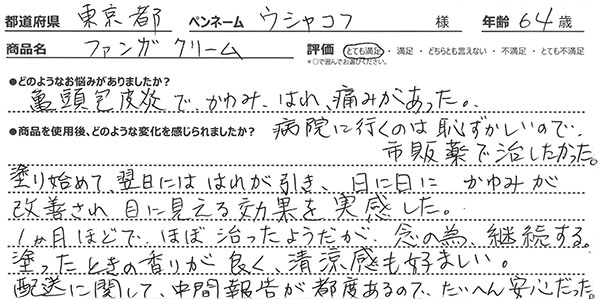 都道府県 東京都 ペンネーム ウシャコフ 様 年齢 64歳
商品名 ファンガクリーム 評価 とても満足・満足・どちらとも言えない・不満足・とても不満足
*○で囲んでお選びください。
●どのようなお悩みがありましたか?
亀頭包皮炎で、かゆみ、はれ、痛みがあった。
●商品を使用後、どのような変化を感じられましたか? 病院に行くのは恥ずかしいので、
市販薬で治したかった。
塗り始めて、翌日にははれが引き、日に日にかゆみが
改善され目に見える効果を実感した。
1ヵ月ほどで、ほぼ治ったようだが、念の為、継続する。
塗ったときの香りが良く、清涼感も好ましい。
配送に関して、中間報告が都度あるので、たいへん安心だった。